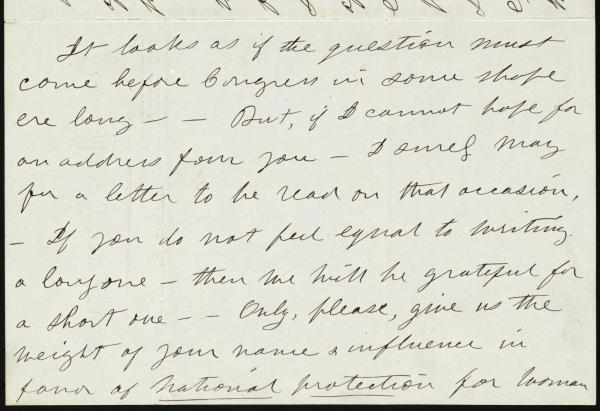 It looks as if the question must
come before Congress in some shape
ere long — — But, if I cannot hope for
an address from you — I surely may
for a letter to be read on that occasion,
— If you do not feel equal to writing
a long one — then we will be grateful for
a short one — — Only, please, give us the
weight of your name & influence in
favor of national protection for woman